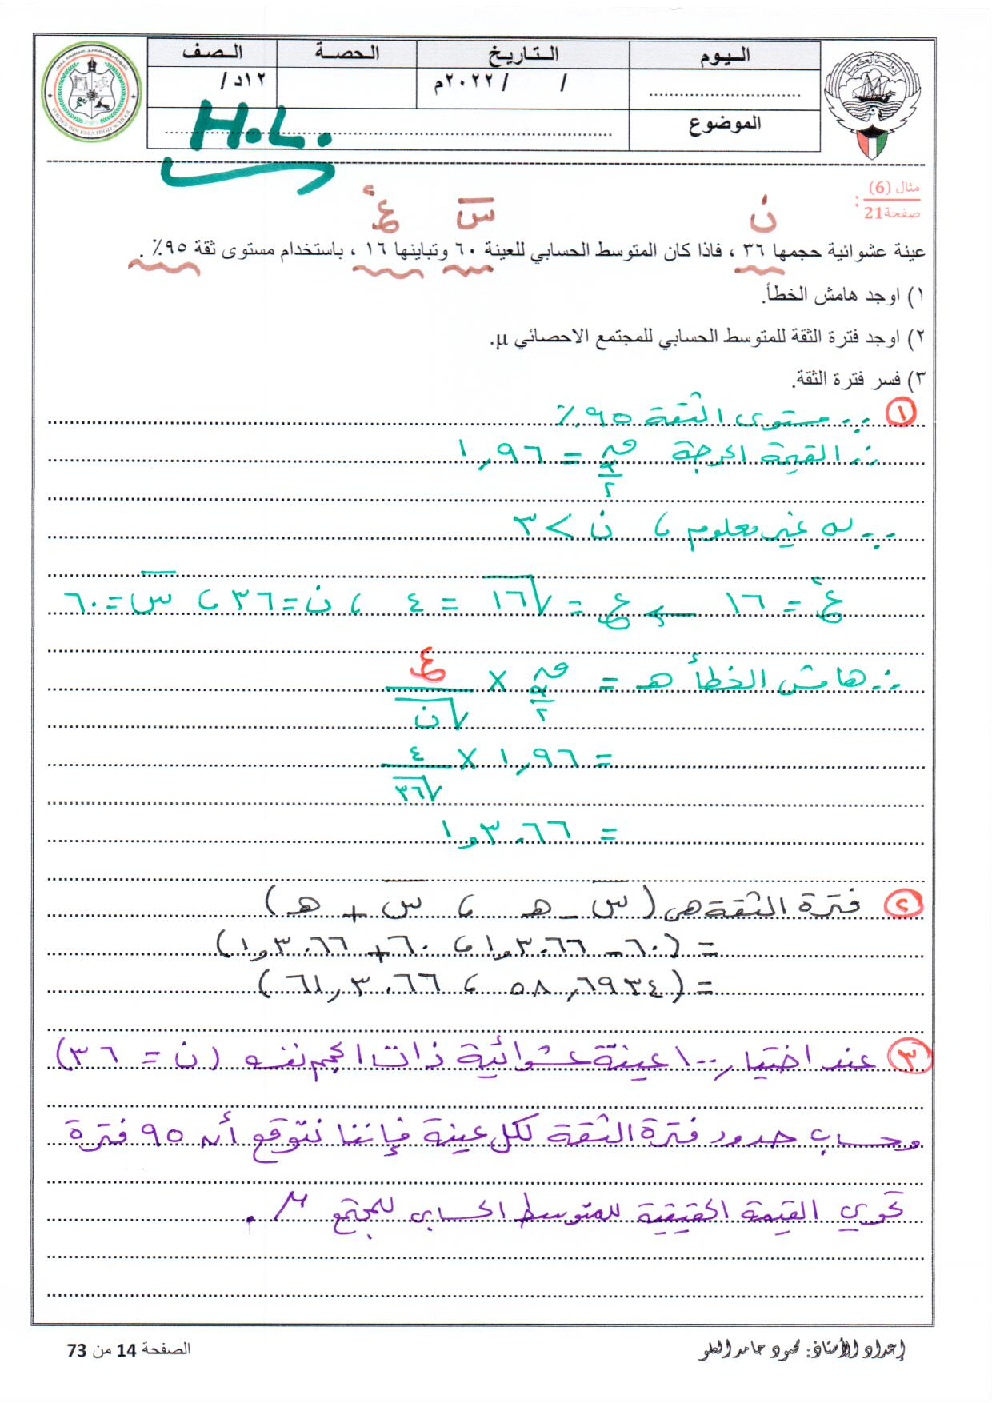 اليوم التاريخ الحصة الصف
/ / ٢٠٢٢م ١٢د /
الموضوع
H.L.
مثال (6)
صفحة 21 :
ن س̅ ع²
عينة عشوائية حجمها ٣٦ ، فاذا كان المتوسط الحسابي للعينة ٦٠ وتباينها ١٦ ، باستخدام مستوى ثقة ٩٥٪ .
١) اوجد هامش الخطأ.
٢) اوجد فترة الثقة للمتوسط الحسابي للمجتمع الاحصائي µ.
٣) فسر فترة الثقة.
١ ∵ مستوى الثقة ٩٥٪
∴ القيمة الحرجة ق α/٢ = ١,٩٦
∵ σ غير معلوم ، ن > ٣٠
ع² = ١٦ ← ع = √١٦ = ٤ ، ن = ٣٦ ، س̅ = ٦٠
∴ هامش الخطأ هـ = ق α/٢ × ع/√ن
= ١,٩٦ × ٤/√٣٦
= ١,٣٠٦٦
٢ فترة الثقة هي (س̅ − هـ ، س̅ + هـ)
= (٦٠ − ١,٣٠٦٦ ، ٦٠ + ١,٣٠٦٦)
= (٥٨,٦٩٣٤ ، ٦١,٣٠٦٦)
٣ عند اختيار ١٠٠ عينة عشوائية ذات الحجم نفسه (ن = ٣٦)
وحساب حدود فترة الثقة لكل عينة فإننا نتوقع أن ٩٥ فترة
تحوي القيمة الحقيقية للمتوسط الحسابي للمجتمع µ .
إعداد الأستاذ: محمود حامد الحلو
الصفحة 14 من 73